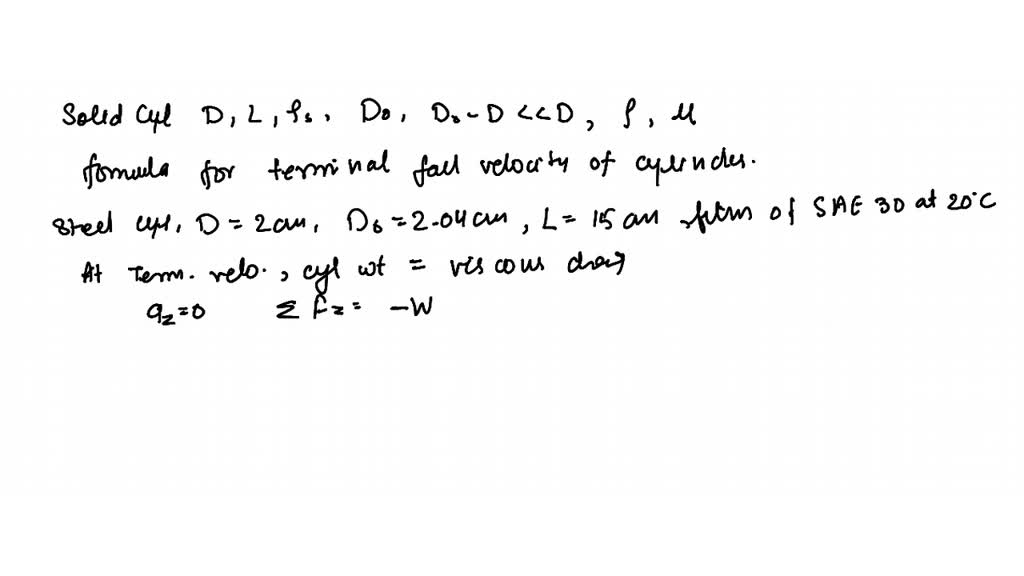 Solid Cyl D, L, ρs, Do, Do-D <<D, ρ, μ
formula for terminal fall velocity of cylinder.
Steel cyl, D = 2cm, Do = 2.04cm, L = 15 cm film of SAE 30 at 20°C
At term. velo., cyl wt = viscous drag
az=0 Σ Fz = -W